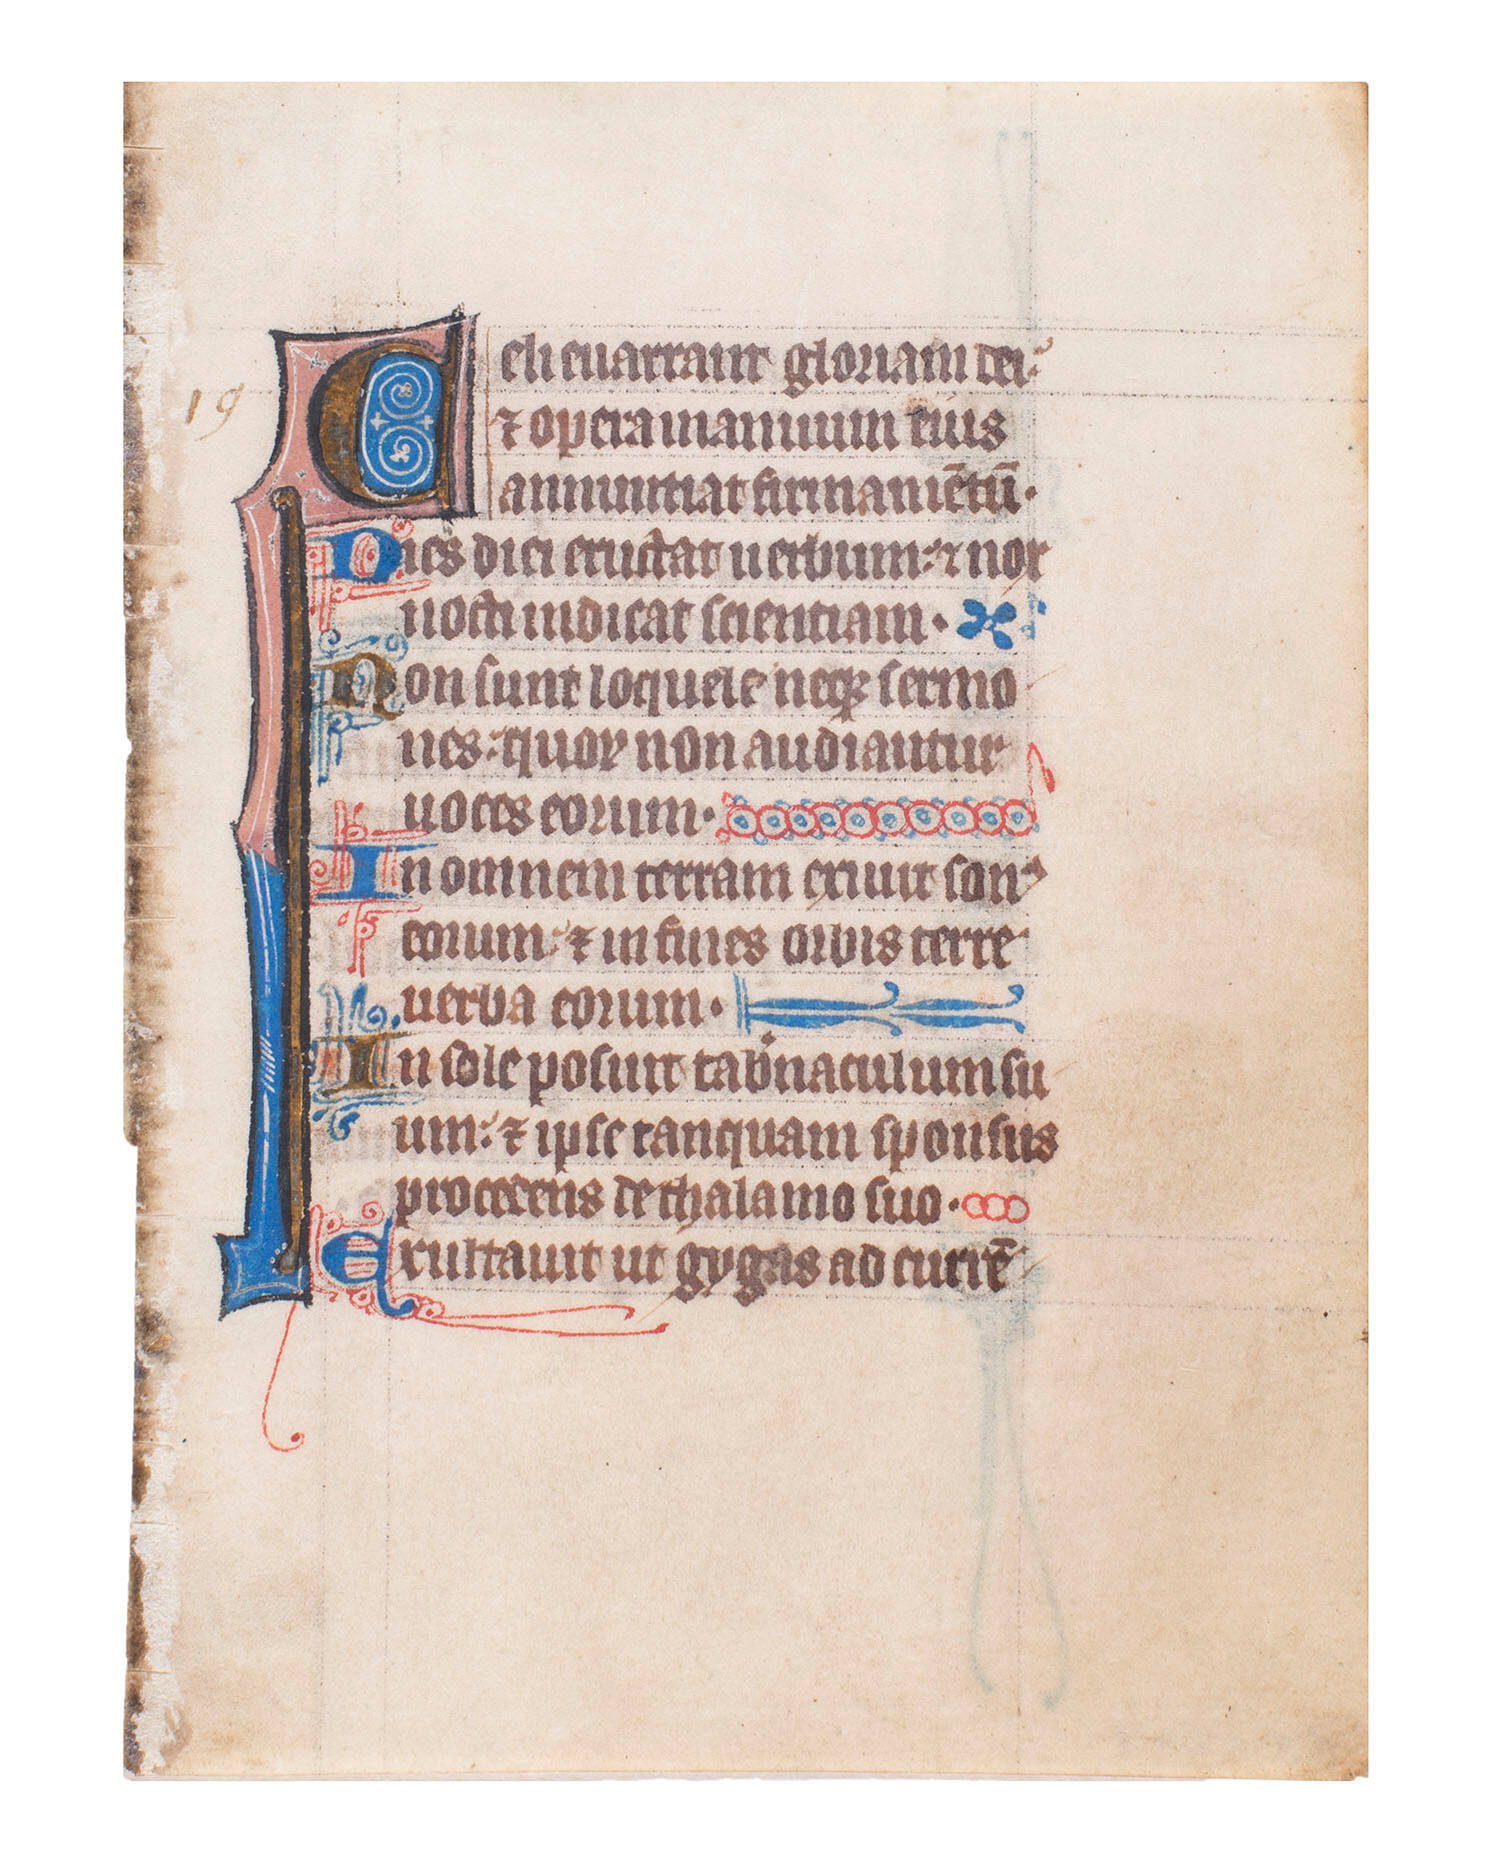 19
Celi enarrant gloriam dei:
⁊ opera manuum eius
annuntiat firmamētū.
Dies diei eructat uerbum: ⁊ nox
nocti indicat scientiam.
Non sunt loquele neqꝫ sermo
nes: quoꝝ non audiantur
uoces eorum.
In omnem terram exiuit sonꝰ
eorum: ⁊ in fines orbis terre
uerba eorum.
In sole posuit tab̾naculum su
um: ⁊ ipse tanquam sponsus
procedens de thalamo suo.
Exultauit ut gygas ad currē